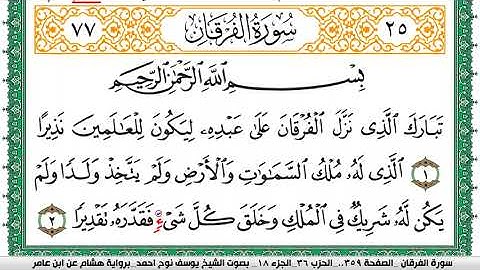 ٢٥ سُورَةُ الْفُرْقَانِ ٧٧
بِسْمِ اللَّهِ الرَّحْمَٰنِ الرَّحِيمِ
تَبَارَكَ الَّذِي نَزَّلَ الْفُرْقَانَ عَلَىٰ عَبْدِهِ لِيَكُونَ لِلْعَالَمِينَ نَذِيرًا
١ الَّذِي لَهُ مُلْكُ السَّمَاوَاتِ وَالْأَرْضِ وَلَمْ يَتَّخِذْ وَلَدًا وَلَمْ
يَكُن لَّهُ شَرِيكٌ فِي الْمُلْكِ وَخَلَقَ كُلَّ شَيْءٍ فَقَدَّرَهُ تَقْدِيرًا ٢
سورة الفرقان _الصفحة ٣٥٩_.. الحزب ٣٦ _الجزء ١٨_ بصوت الشيخ يوسف نوح احمد_برواية هشام عن ابن عامر